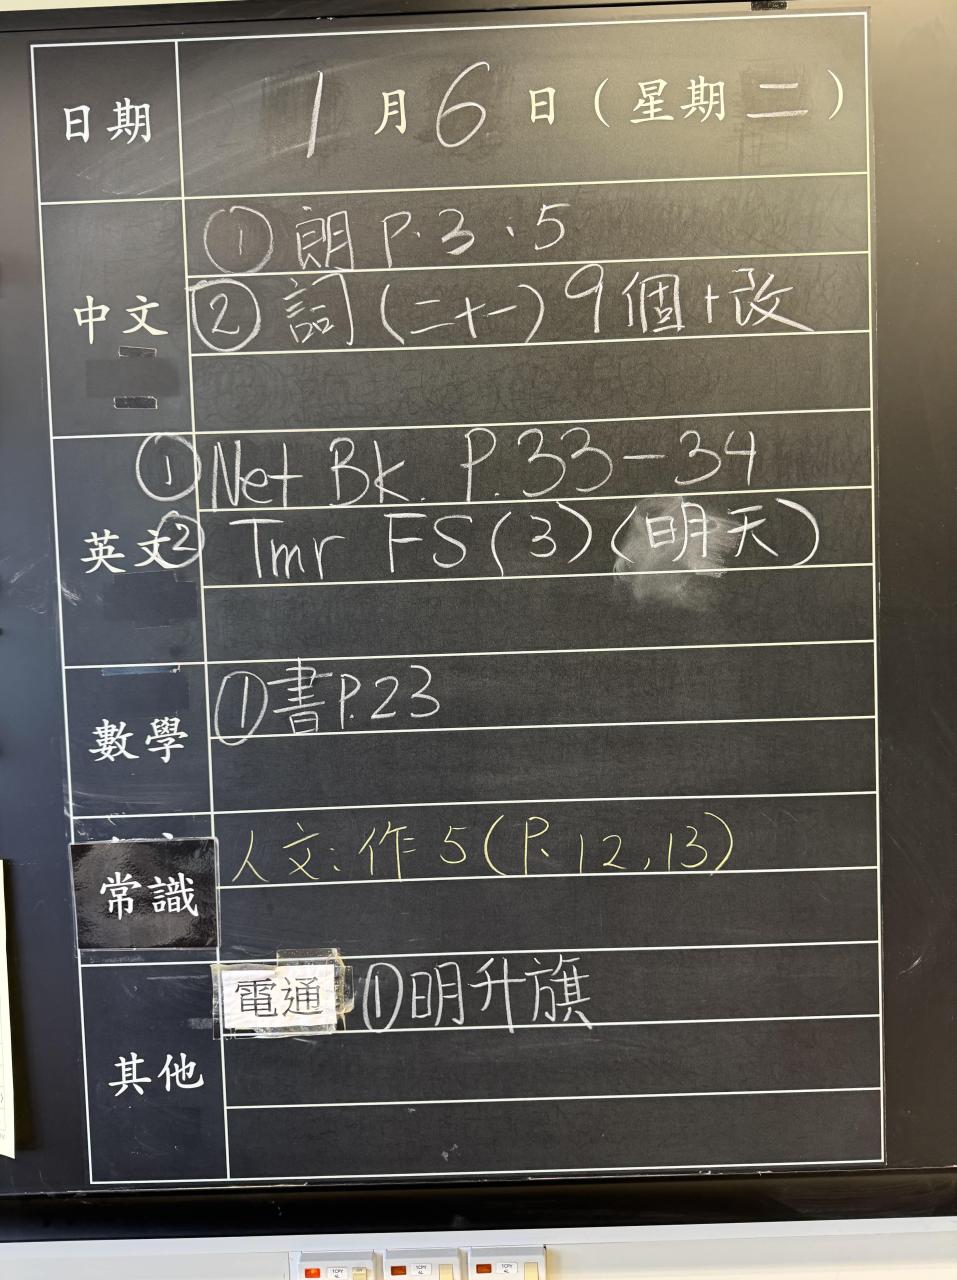 日期 1月6日(星期二)
中文 ① 朗 P.3、5
② 詞(二十一)9個+改
英文 ① Net Bk. P.33-34
② Tmr FS(3)(明天)
數學 ①書P.23
常識 人文:作5(P.12,13)
其他 電通 ①明升旗
1CPY
4L
1CPY
4L
1CPY
4L